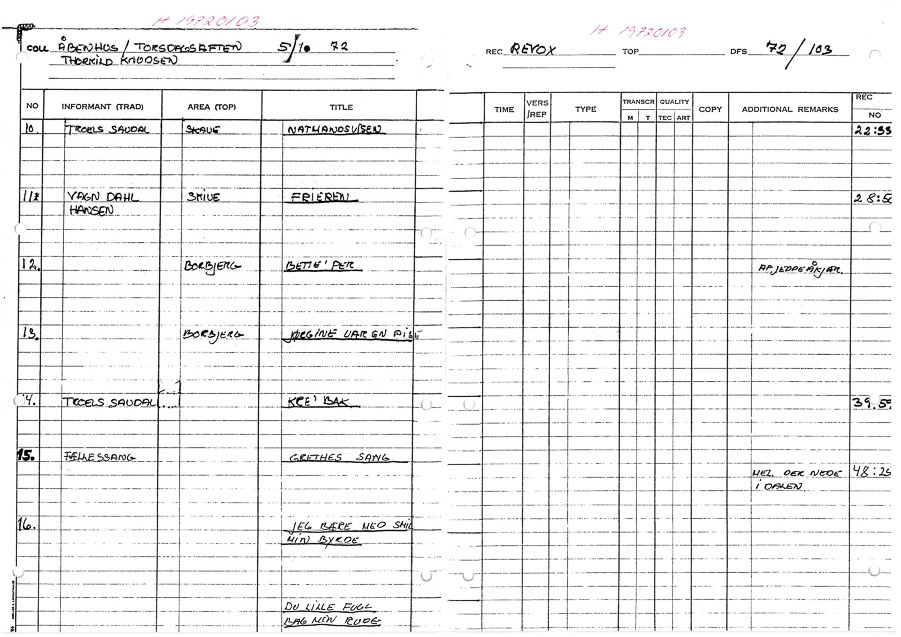 H 19720103
COLL ÅBENHUS / TORSDAGSAFTEN 5/10 72
THORKILD KNUDSEN
NO INFORMANT (TRAD) AREA (TOP) TITLE
10. TROELS SAUDAL SKAUE NATMANDSVISEN
11* VAGN DAHL SKIVE FRIEREN
HANSEN
12. BORBJERG BETTE' PER
13. BORBJERG JØRGINE VAR EN PIGE
14. TROELS SAUDAL KRE' BAK
15. FÆLLESSANG GRETHES SANG
16. JEG BÆRE MED SMIL
MIN BYRDE
DU LILLE FUGL
BAG MIN RUDE
H 19720103
REC REVOX TOP DFS 72 / 103
TIME VERS /REP TYPE TRANSCR M T QUALITY TEC ART COPY ADDITIONAL REMARKS REC NO
22:55
28:50
AF JEPPE ÅKJÆR.
39.59
MEL. DER NEDE 48:25
I DALEN.